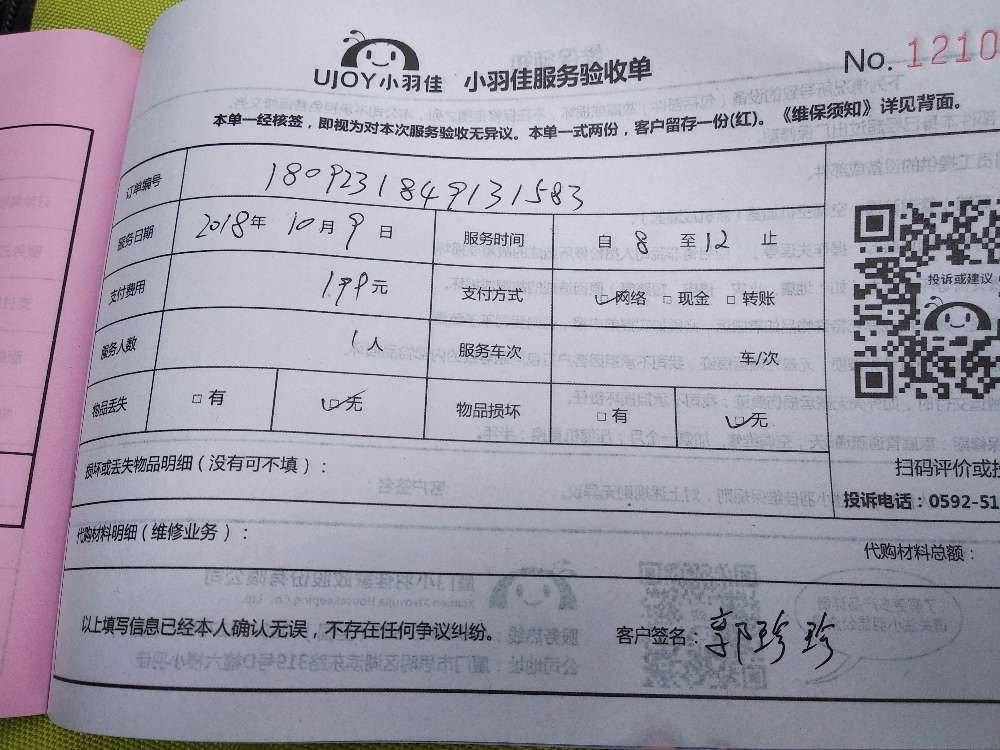 UJOY小羽佳 小羽佳服务验收单 No. 1210
本单一经核签，即视为对本次服务验收无异议。本单一式两份，客户留存一份(红)。《维保须知》详见背面。
订单编号 1809231849131583
服务日期 2018年 10月 9日 服务时间 自 8 至 12 止
支付费用 199元 支付方式 ☑网络 □现金 □转账
服务人数 1人 服务车次 车/次
物品丢失 □有 ☑无 物品损坏 □有 ☑无
投诉或建议
损坏或丢失物品明细（没有可不填）：
扫码评价或投
投诉电话：0592-51
代购材料明细（维修业务）：
代购材料总额：
以上填写信息已经本人确认无误，不存在任何争议纠纷。 客户签名：郭珍珍